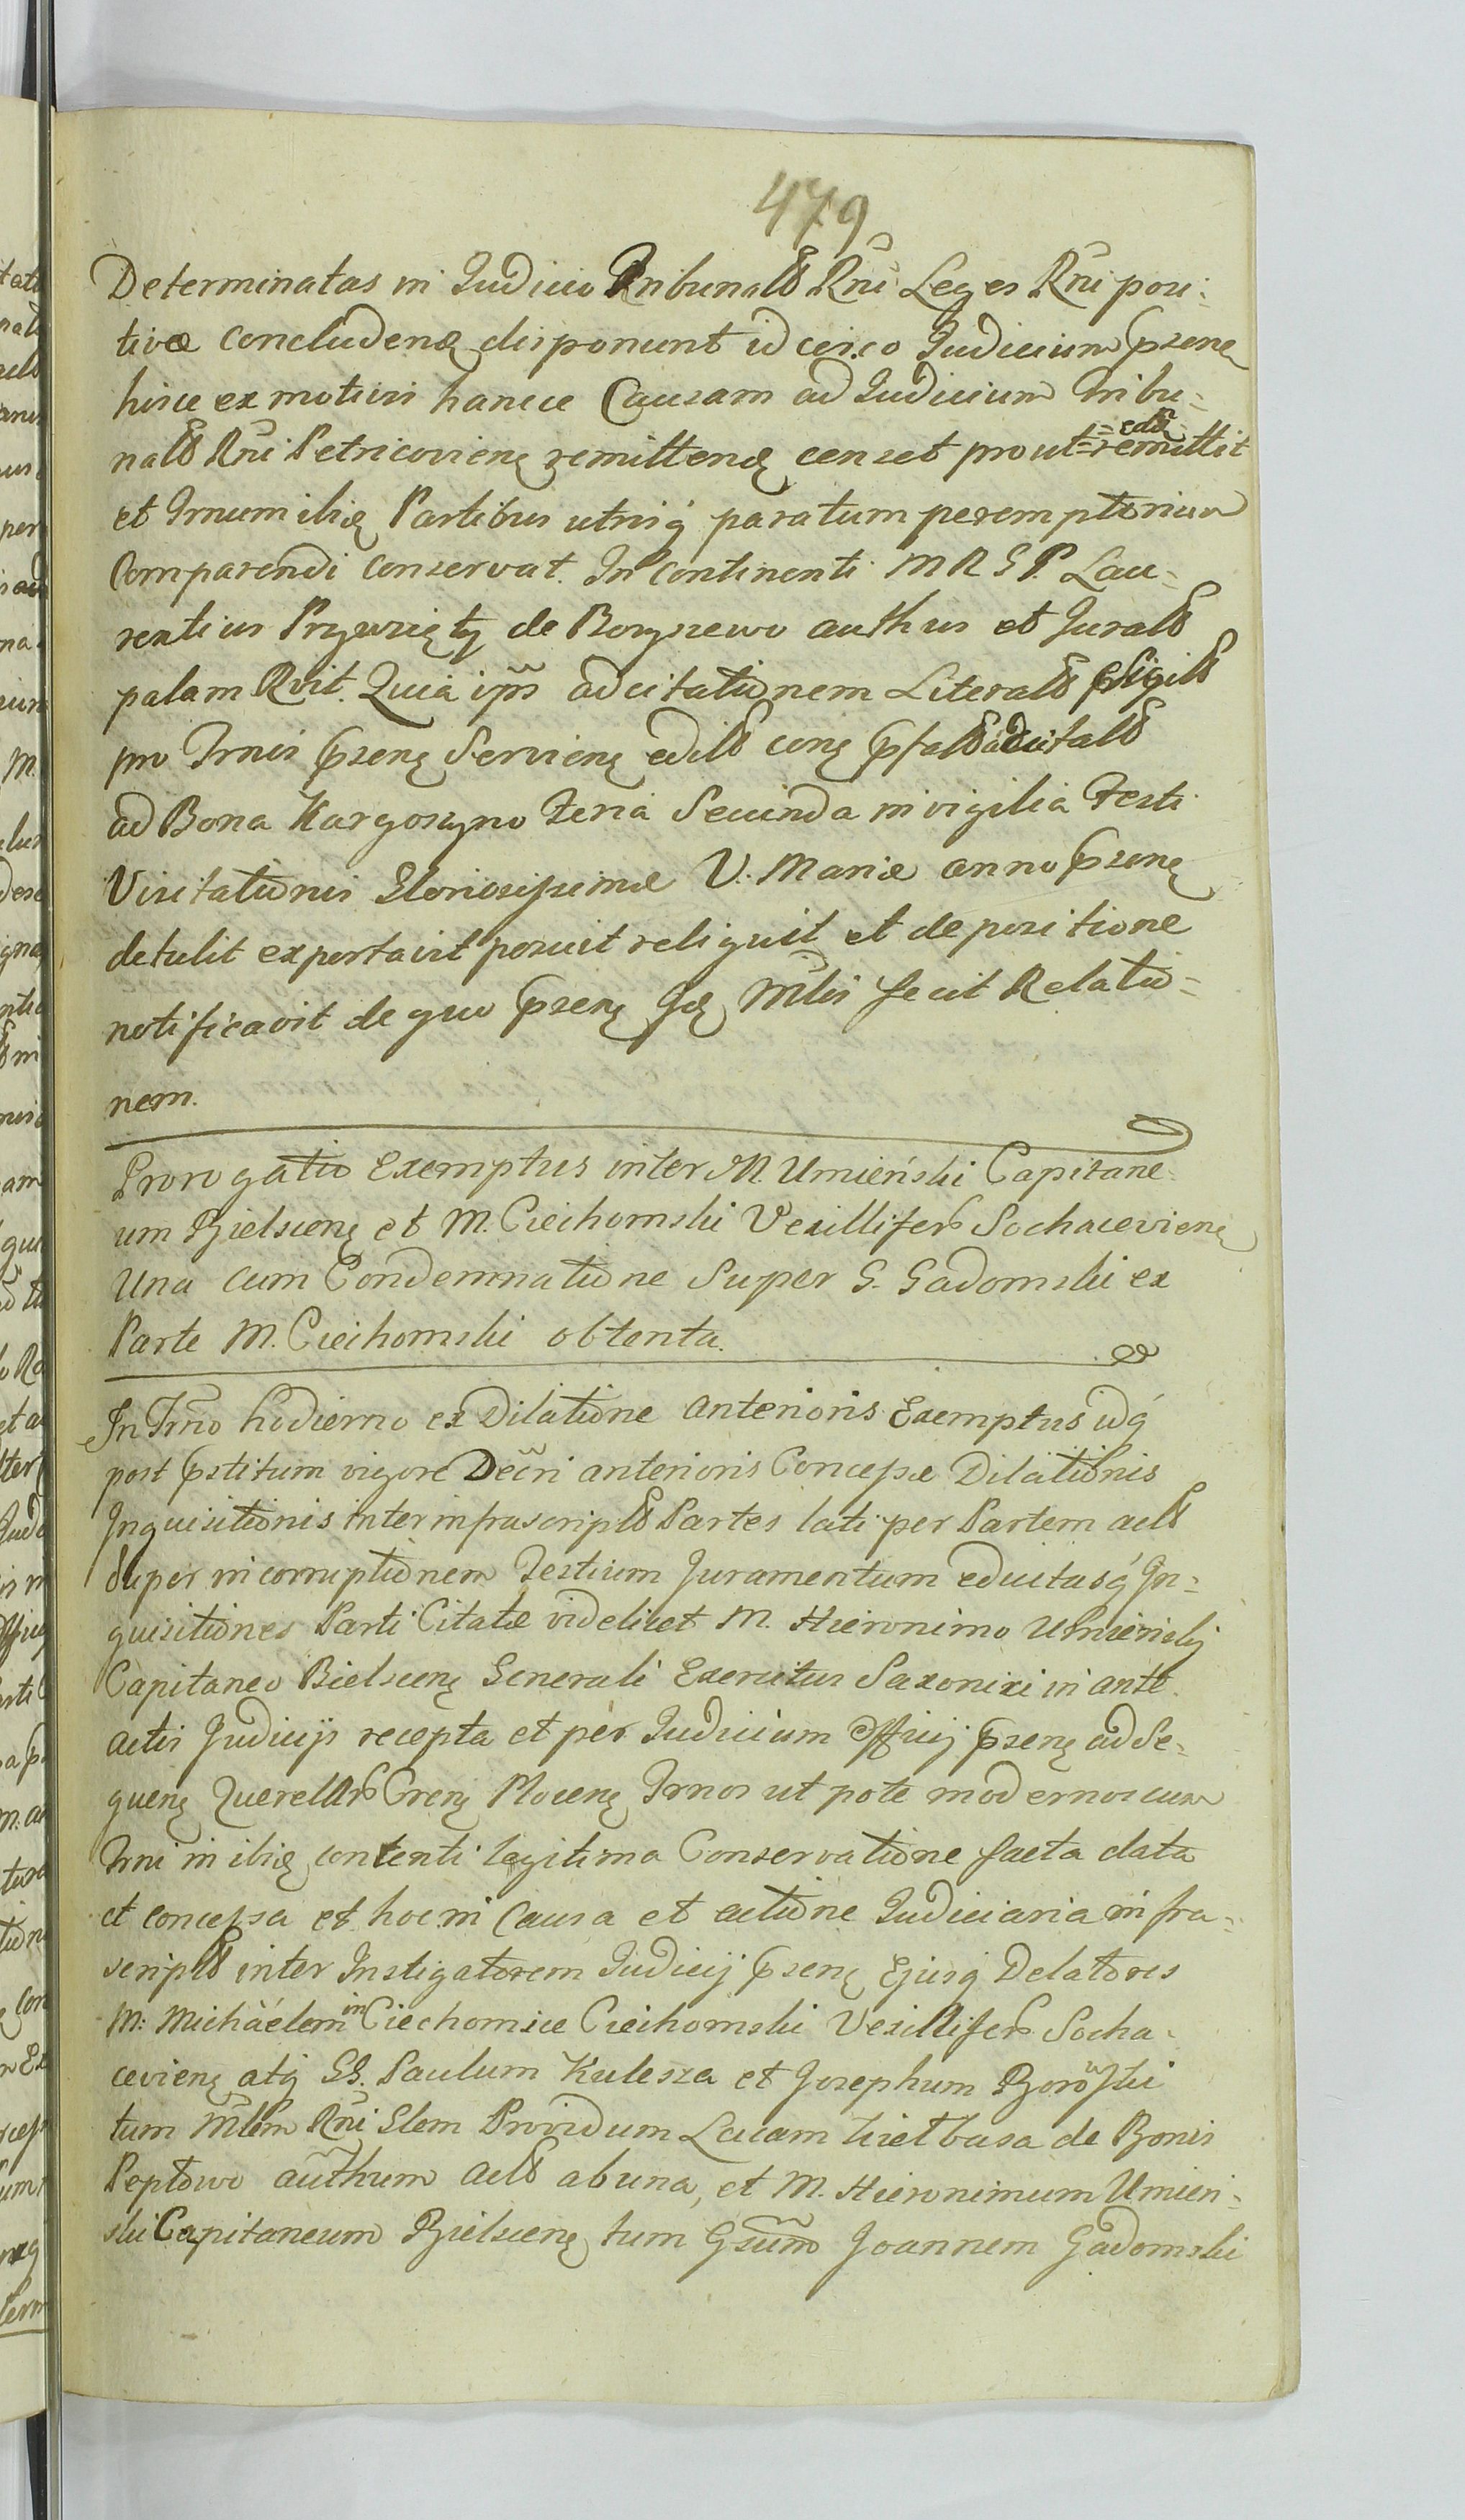 479
Determinatas in Judicio Tribunal̃ Rñi Leges Rñi posi:
tivæ concludenđ disponunt id circo Judicium pszenę
hisce ex motivis hancce Causam ad Judicium Tribu:
nal̃ Rñi Petricovienę remittenđ censet prout =edt= remittit
et Trnum ibię Partibus utrisq̃ paratum peremptorium
Comparendi conservat. In continenti M R G P. Lau:
rentius Przywzięty de Boryszewo authus et Jurat
palam Rvit. Quia ipm̃ adcitationem Literal̃ Sigil̃
pro Trnis pszenę Servienę edit conę
ad Bona Kargoszyno Feria Secunda in vigilia Festi
Visitationis Gloriosissimæ V. Mariæ anno pszenę
detulit exportavit posuit reliquit et depositione
notificavit de quo pszenę Mltis fecit Relatio=
nem.
Prorogatio Exemptus inter M. Umieński Capitane:
um Bielscenę et M. Ciechomski Vexillifer Sochacevienę
Una cum Condemnatione Super G. Gadomski ex
Parte M. Ciechomski obtenta.
In Trño hodierno ex Dilatione anterioris Exemptus idq̃
post pstitum vigore Decri anterioris Concessæ Dilationis
Inquisitionis inter infrascript Partes lati per Partem act
Super incorruptionem Testium Juramentum eductasq̃ In=
quisitiones Parti Citatæ videlicet M. Hieronimo Umienskj
Capitaneo Bielscenę Generali Exercitus Saxonixi in ante
actis Judicijs recepta et per Judicium Officij pszenę ad Se=
quenę Querellar Crenę Plocenę Trnos ut pote modernos cum
Trni in ibię contenti legitima Conservatione facta data
et concessa et hoc in Causa et actione Judiciaria infra=
script inter Instigatorem Judicij pszenę Ejusq̃ Delatores
M: Michäelem in Ciechomice Ciechomski Vexillifer Socha=
cevienę atq̃ GG. Paulum Kulesza et Josephum
tum Mltm Rñi Slem Providum Lucam de Bonis
Peptowo authum act ab una, et M. Hieronimum Umien:
ski Capitaneum Bielscenę tum Gsum Joannem Gadomski